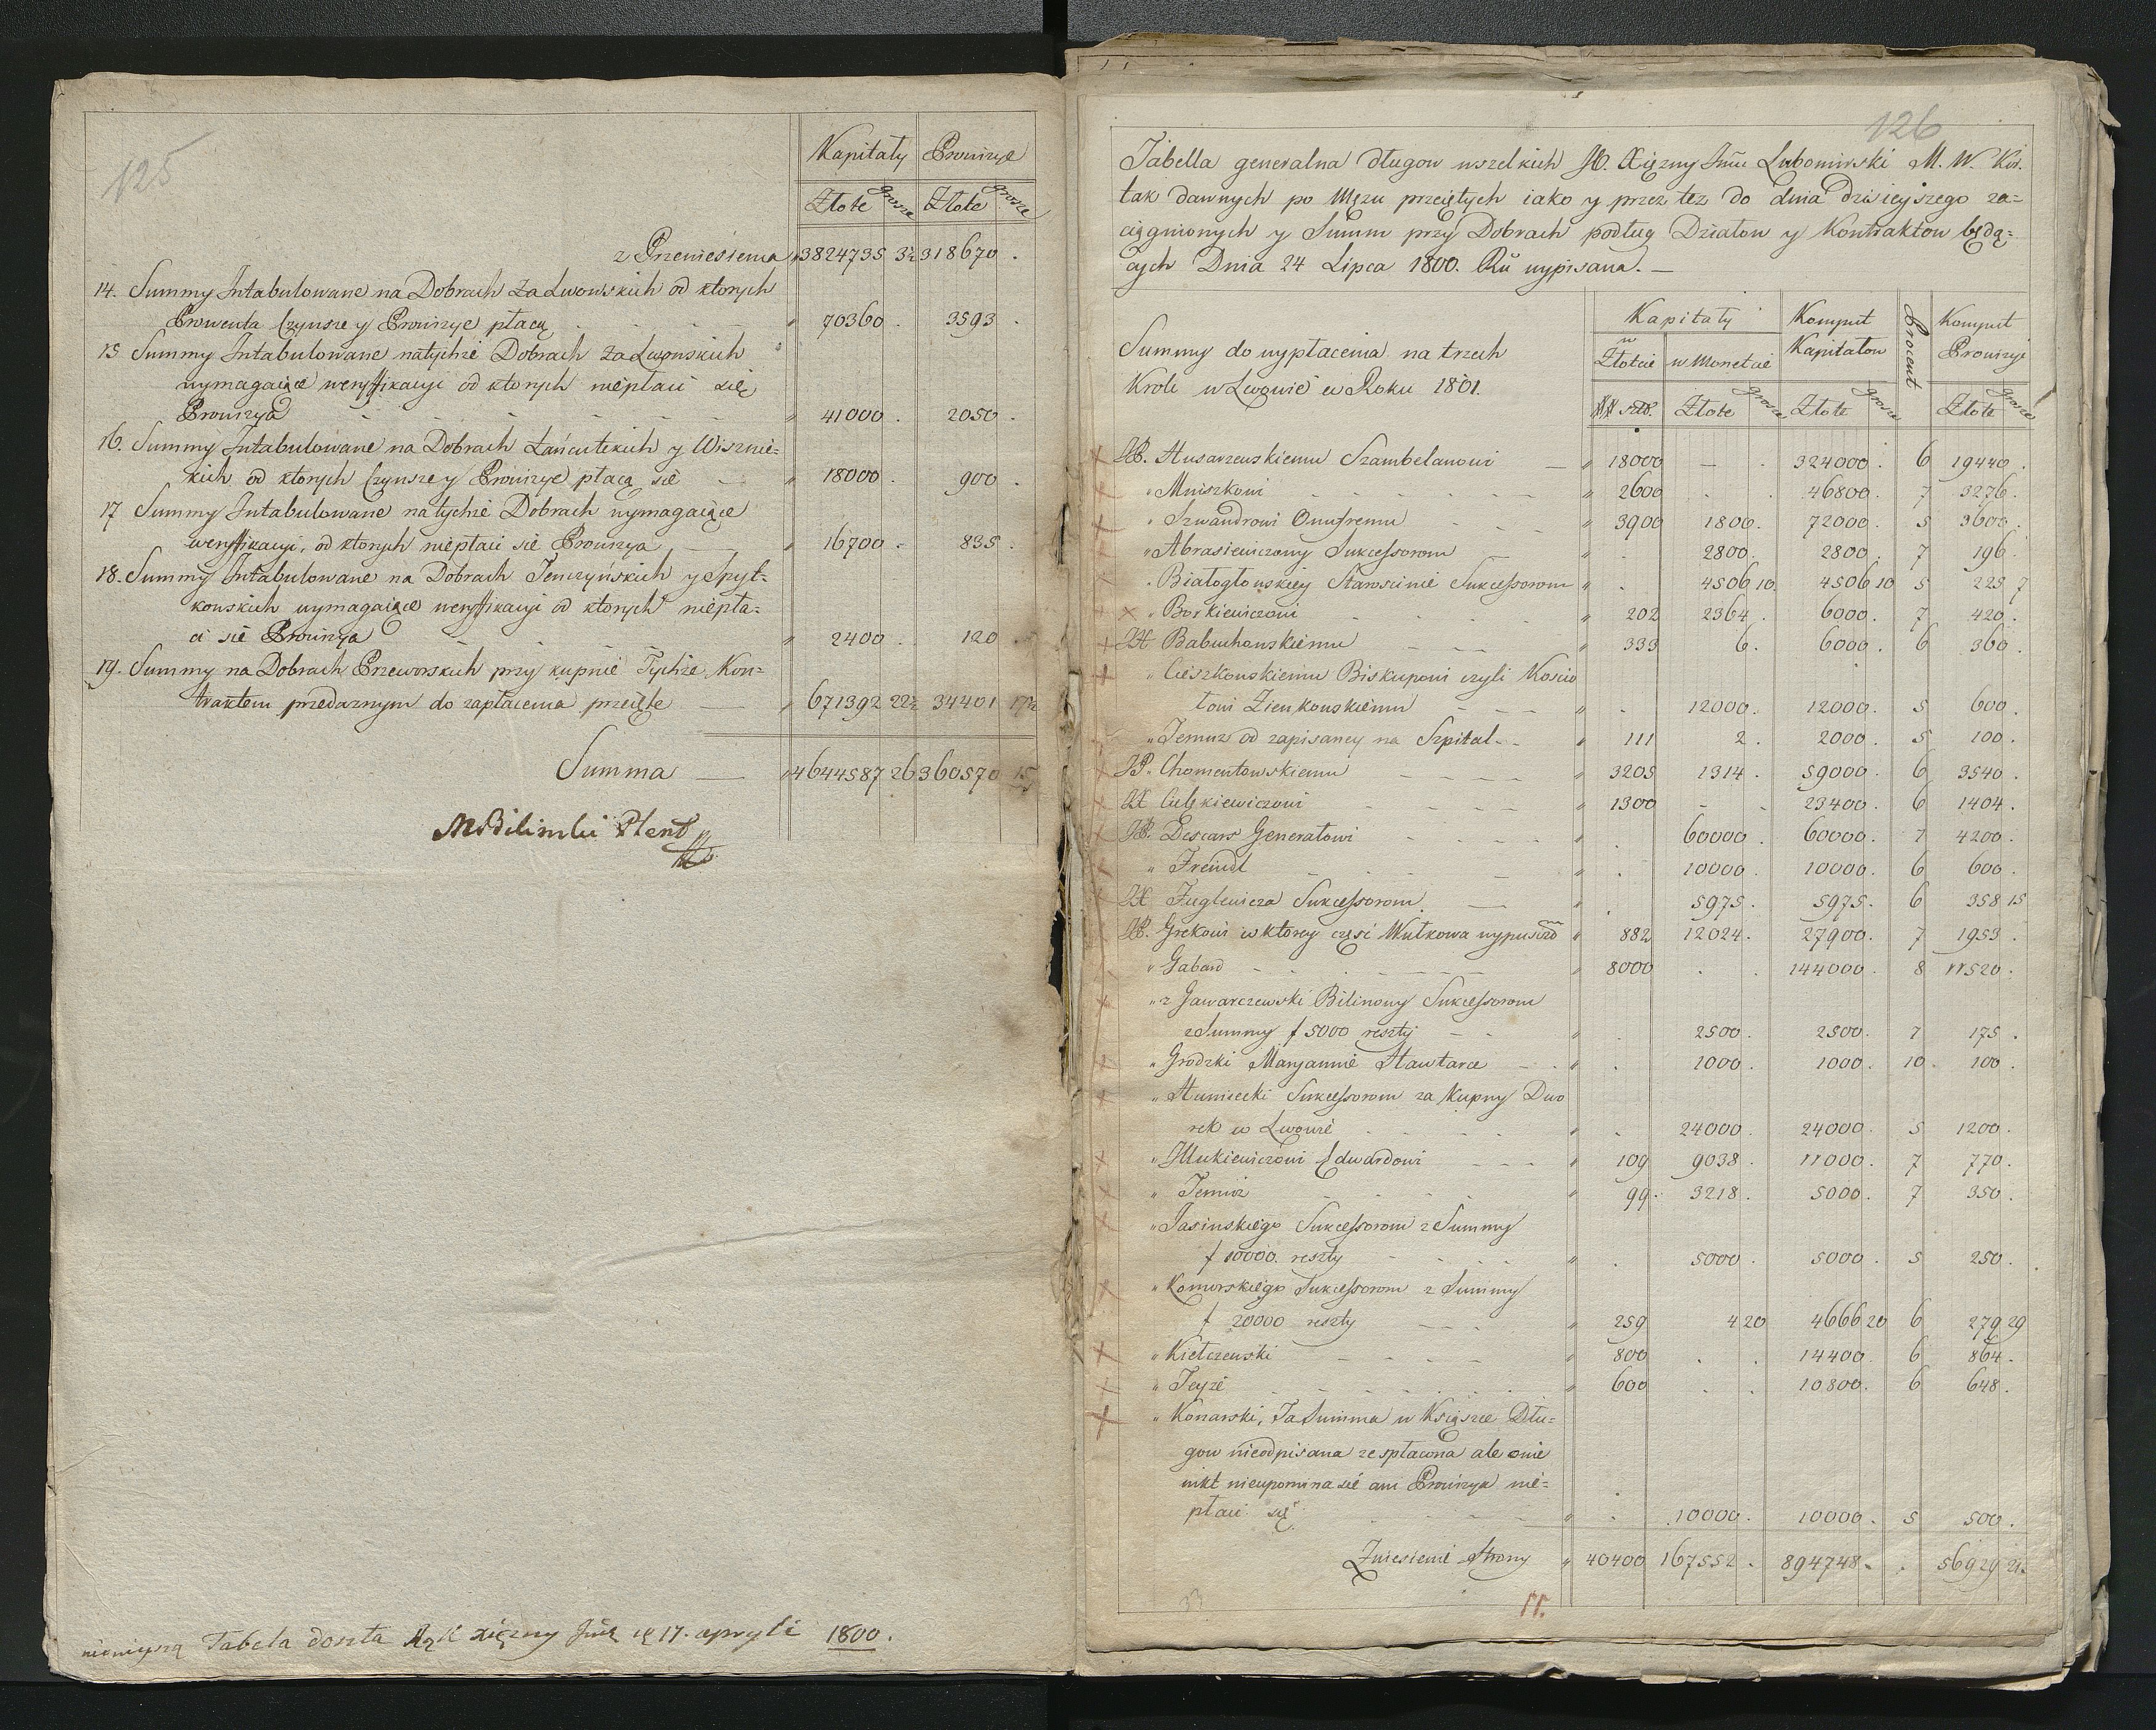 125
Kapitały Prowizye
Złote grosze Złote grosze
z Przeniesienia 3824735 3½ 318670 .
14. Summy Intabulowane na Dobrach za Lwowskich od ktorych
Prowenta Czynsze y Prowizye płacą 70360 . 3593 .
15 Summy Intabulowane natychże Dobrach za Lwowskich
wymagaiące weryfikacyi od ktorych niepłaci się
Prowizya 41000 . 2050 .
16. Summy Intabulowane na Dobrach Łańcutskich y Wisznic=
kich od ktorych Czynsze y Prowizye płacą się 18000 . 900 .
17 Summy Intabulowane natychże Dobrach wymagaiące
weryfikacyi, od ktorych niepłaci sie Prowizya 16700 . 835 .
18. Summy Intabulowane na Dobrach Tenczyńskich y Spyt=
kowskich wymagaiące weryfikacyi od ktorych niepła=
ci sie Prowizya 2400 . 120
19. Summy na Dobrach Przeworskich przy kupnie Tychże Kon=
traktem przedarznym do zapłacenia przeięte 671392 22½ 34401 17½
Summa 4644587 26 360570 15
Tabela doszła Rąk xiężny 17. aprylis 1800.
126
Tabella generalna długow wszelkich JO. Xiężny Jmci Lubomirski M. W. Kor.
tak dawnych po Mężu przeiętych iako y przez też do dnia dzisieyszego za=
ciągnionych y Summ przy Dobrach podług Działow y Kontraktow będą=
cych Dnia 24 Lipca 1800. Ru wypisana. —
Kapitały Komput Kapitałow Procent Komput Prowizyi
Summy do wypłacenia na trzech
w Złotcie w Monetcie
Krole w Lwowie w Roku 1801.
Złote grosze Złote grosze Złote grosze
JP. Husarzewskiemu Szambelanowi 18000 — . 324000 . 6 19440 .
" Mniszkowi 2600 . . 46800 . 7 3276 .
" Szwandrowi Onufremu 3900 1800 . 72000 . 5 3600 .
" Abrasiewiczowy Sukcessorom . 2800 . 2800 . 7 196 .
" Białogłowskiey Starościnie Sukcessorom . 4506 10 4506 10 5 225 7
" Borkiewiczowi 202 2364 . 6000 . 7 420 .
JX Babuchowskiemu 333 6 . 6000 . 6 360 .
" Cieszkowskiemu Biskupowi czyli Kościo
łowi Zienkowskiemu . 12000 . 12000 . 5 600 .
" Temuz od zapisaney na Szpital 111 2 . 2000 . 5 100 .
JP. Chomentowskiemu 3205 1314 . 59000 . 6 3540 .
JX 1300 - . 23400 . 6 1404 .
JP. Descars Generałowi . 60000 . 60000 . 7 4200 .
" Freindl . 10000 . 10000 . 6 600 .
JX Fuglewicza Sukcessorom . 5975 . 5975 . 6 358 15
JP. Grekowi w ktorey częsi Wutkowa wypuszczo 882 12024 . 27900 . 7 1953 .
" Gabard 8000 . . 144000 . 8 11520 .
" z Gawarczewski Bilinowy Sukcessorom
z Summy f 5000 reszty . 2500 . 2500 . 7 175 .
" Grodzki Maryannie . 1000 . 1000 . 10 . 100 .
" Humiecki Sukcessorom za Kupny Dwo
rek w Lwowie . 24000 . 24000 . 5 1200 .
" Edwardowi 109 9038 . 11000 . 7 770 .
" Temuż 99 . 3218 . 5000 . 7 350 .
" Jasinskiego Sukcessorom z Summy
f 10000. reszty . 5000 . 5000 . 5 250 .
" Komorskiego Sukcessorom z Summy
f 20000 reszty 259 4 20 4666 20 6 279 29
" Kiełczewski 800 . . 14400 . 6 864 .
" Teyże 600 . . 10800 . 6 648 .
" Konarski, Ta Summa w Księsce Dłu=
gow nieodpisana ze spłacona ale onie
nikt nieupomina się ani Prowizya nie=
płaci się . 10000 . 10000 . 5 500 .
Zniesienie Strony 40400 167552 . 894748 . . 56929 21
11.